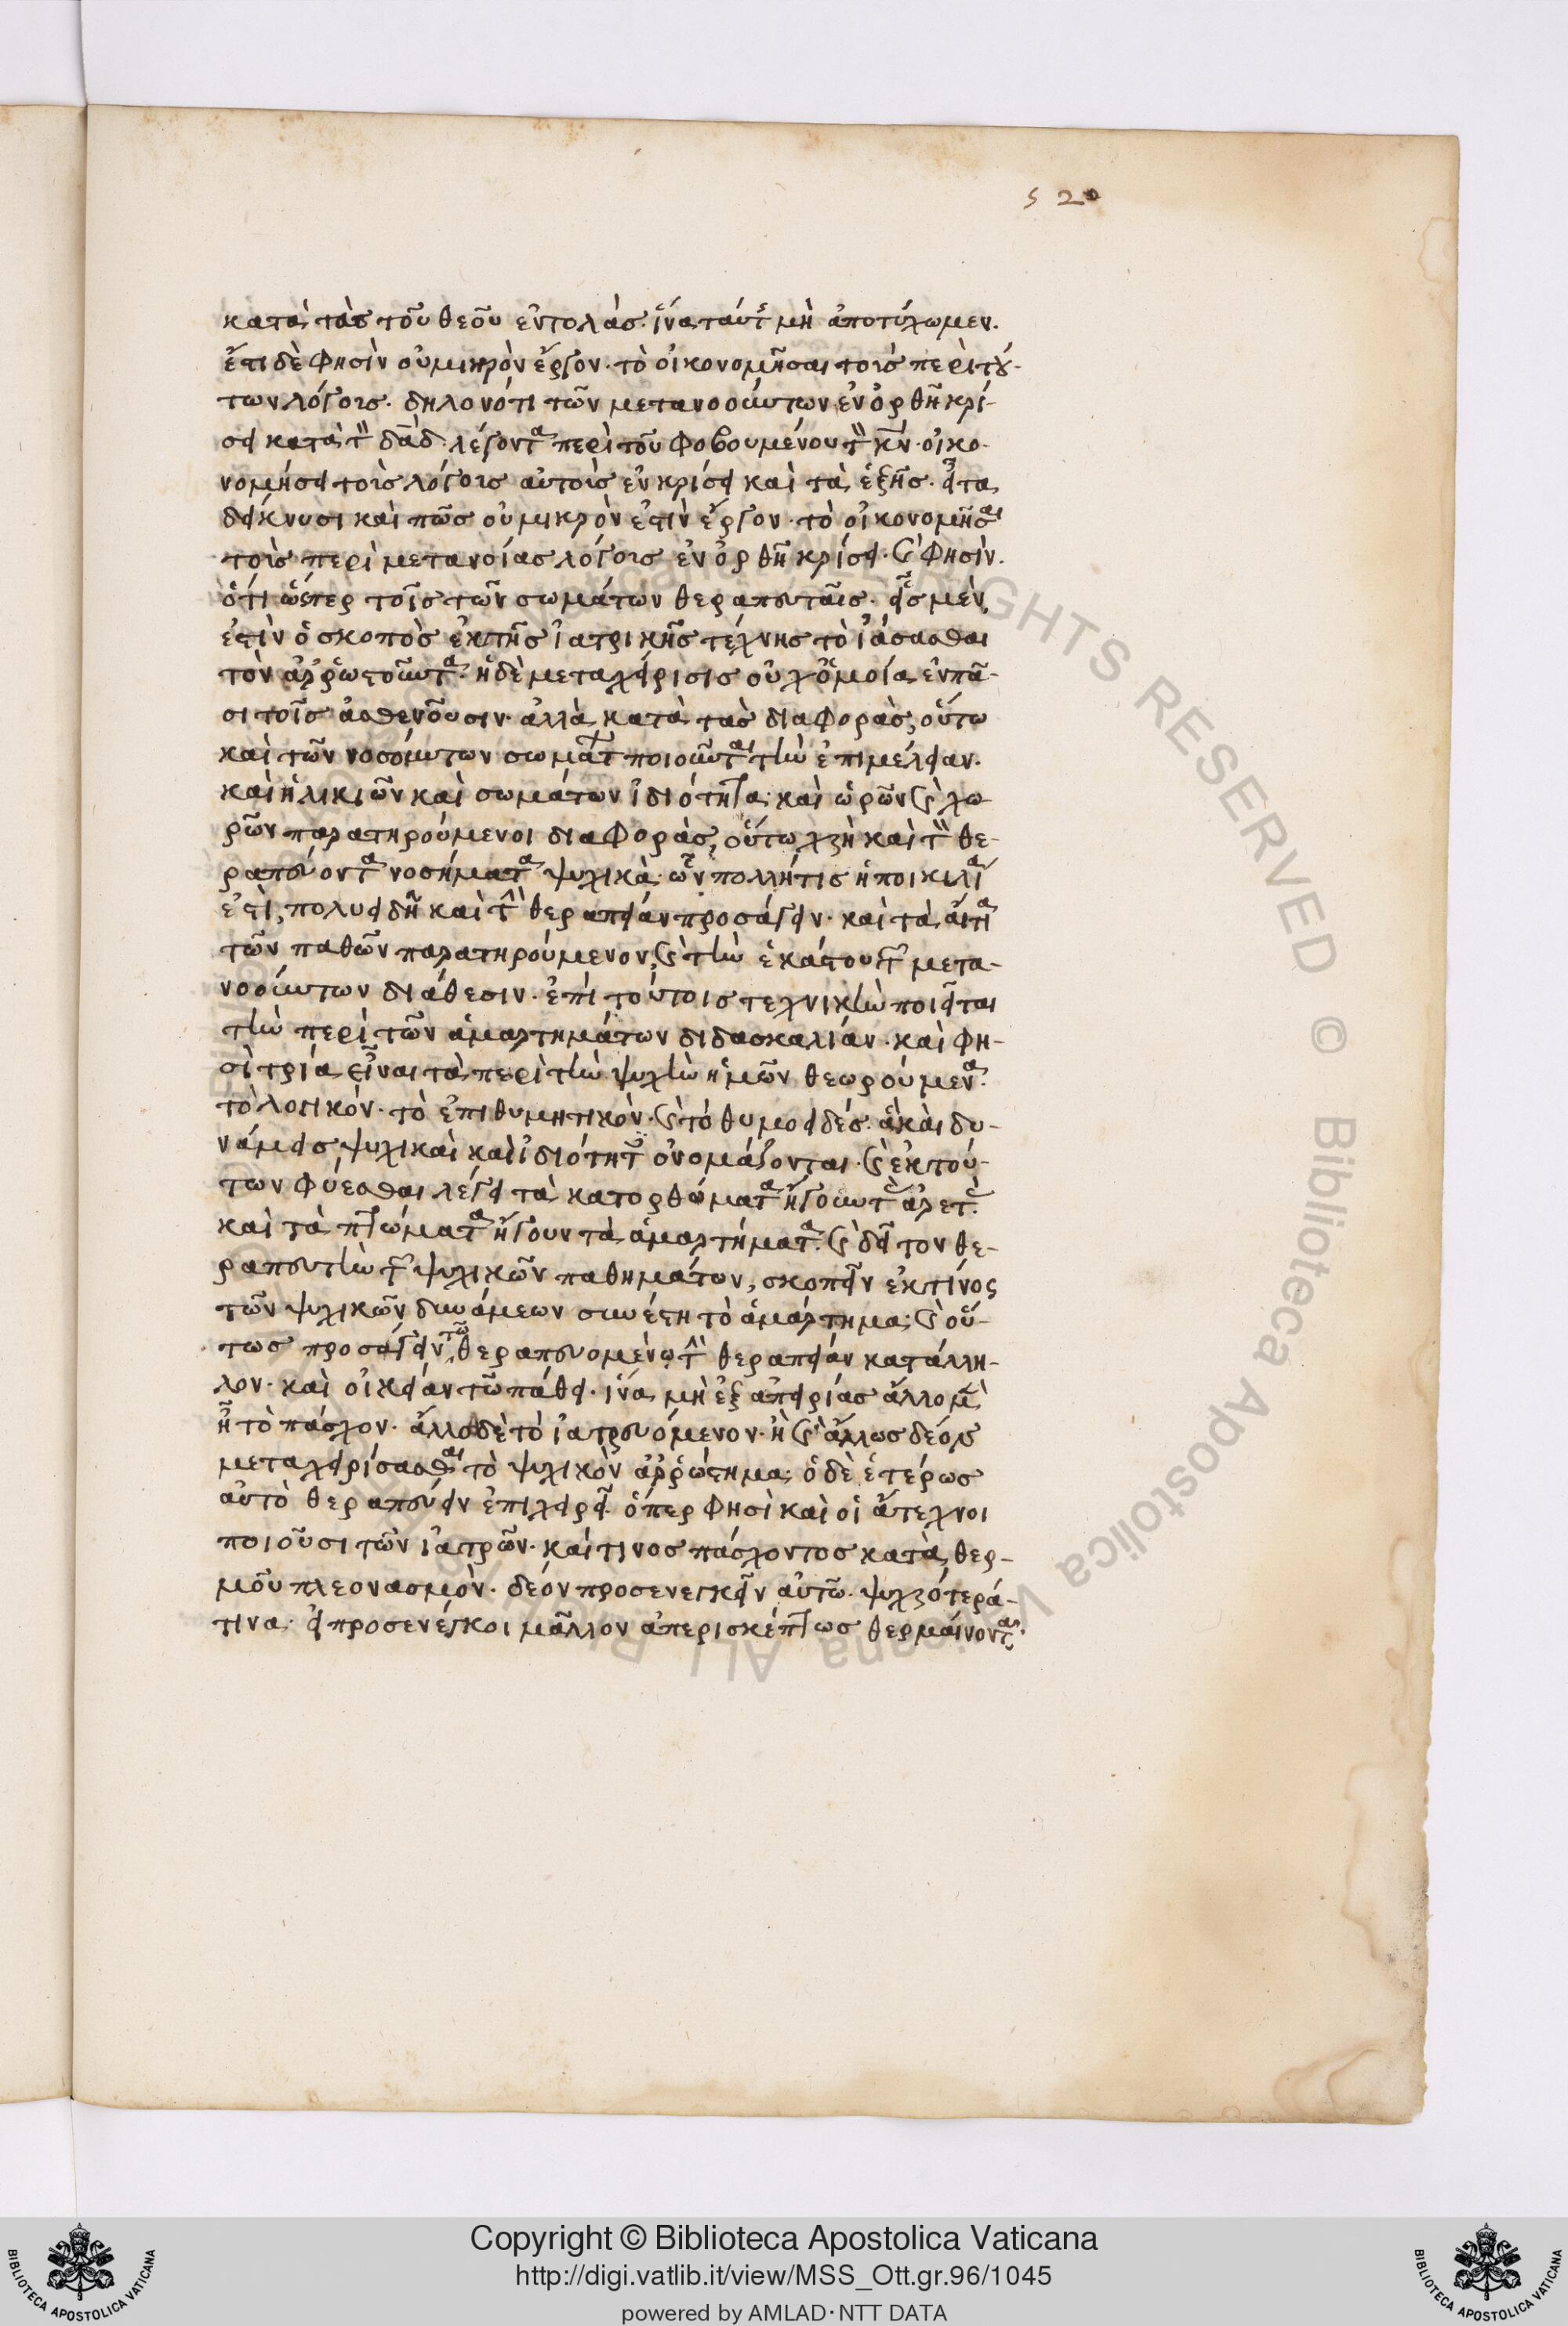 520
κατὰ τὰς τοῦ θεοῦ ἐντολὰσ. ἵνα ταύτ μὴ ἀποτύχωμεν.
ἔτι δὲ φησὶν οὐ μικρὸν ἔργον. τὸ οἰκονομῆσαι τοὺς περὶ τού-
των λόγοισ. δηλονότι τῶν μετανοούντων ἐν ὀρθῆ κρί-
σει κατὰ τὸν δᾱδ. λέγοντα περὶ τοῦ φοβουμένου τὸν κ̄ν. οἰκο-
νομήσει τοὺς λόγους αὐτοῖς ἐν κρίσει καὶ τὰ ἑξῆσ. εἶτα
δείκνυσι καὶ πῶς οὐ μικρὸν ἐστὶν ἔργον. τὸ οἰκονομῆσαι
τοὺς περὶ μετανοίας λόγοις ἐν ὀρθῆ κρίσει. καὶ φησὶν.
ὅτι ὥσπερ τοῖς τῶν σωμάτων θεραπευταῖς. εἷς μὲν
ἐστὶν ὁ σκοπὸς ἐκ τῆς ἰατρικῆς τέχνης τὸ ἰάσασθαι
τὸν ἀρρωστοῦντα. ἡ δὲ μεταχείρισις οὐχ ὁμοία ἐν πᾶ-
σι τοῖς ἀσθενοῦσιν. ἀλλὰ κατὰ τὰς διαφορὰς, οὕτω
καὶ τῶν νοσούντων σωμάτ ποιοῦνται τὴν ἐπιμέλειαν.
καὶ ἡλικιῶν καὶ σωμάτων ἰδιότητα. καὶ ὡρῶν καὶ χω
ρῶν παρατηρούμενοι διαφορὰς, οὕτω χρὴ καὶ τὸν θε-
ραπεύοντα νοσήματα ψυχικὰ. ὧν πολλή τις ἡ ποικιλία
ἐστὶ, πολυειδῆ καὶ τὴν θεραπείαν προσάγειν. καὶ τὰ αἴτια
τῶν παθῶν παρατηρούμενον, καὶ τὴν ἑκάστου τῶν μετα-
νοούντων διάθεσιν. ἐπὶ τούτοις τεχνικὴν ποιεῖται
τὴν περὶ τῶν ἁμαρτημάτων διδασκαλίαν. καὶ φη-
σὶ τρία εἶναι τὰ περὶ τὴν ψυχὴν ἡμῶν θεωρούμενα.
τὸ λογικόν. τὸ ἐπιθυμητικὸν. καὶ τὸ θυμοειδές. ἃ καὶ δυ-
νάμεις ψυχικαὶ καὶ ἰδιότητ ὀνομάζονται. καὶ ἐκ τού-
των φύεσθαι λέγει τὰ κατορθώματα ἤγουν τὰς ἀρετὰς.
καὶ τὰ πτώματα ἤγουν τὰ ἁμαρτήματα. καὶ δεῖ τον θε-
ραπευτὴν τῶν ψυχικῶν παθημάτων, σκοπεῖν ἐκ τίνος
τῶν ψυχικῶν δυνάμεων συνέστη τὸ ἁμάρτημα. καὶ οὕ-
τως προσάγειν τῶ θεραπευομένω τὴν θεραπείαν κατάλλη-
λον. καὶ οἰκείαν τῶ πάθει. ἵνα μὴ ἐξ ἀπειρίας ἄλλο μὲν
ἦ τὸ πάσχον. ἄλλο δὲ τὸ ἰατρευόμενον. ἢ καὶ ἄλλως δέον
μεταχειρίσασθαι τὸ ψυχικὸν ἀρρώστημα. ὁ δὲ ἑτέρως
αὐτὸ θεραπεύειν ἐπιχειρεῖ. ὅπερ φησὶ καὶ οἱ ἄτεχνοι
ποιοῦσι τῶν ἰατρῶν. καί τινος πάσχοντος κατὰ θερ-
μοῦ πλεονασμὸν. δέον προσενεγκεῖν αὐτῶ. ψυχρότερά-
τινα. εἰ προσενέγκοι μᾶλλον ἀπερισκέπτως θερμαίνοντα.
Copyright © Biblioteca Apostolica Vaticana
http://digi.vatlib.it/view/MSS_Ott.gr.96/1045
powered by AMLAD·NTT DATA
BIBLIOTECA APOSTOLICA VATICANA
BIBLIOTECA APOSTOLICA VATICANA